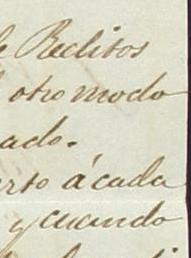 de Reclitos
otro modo
ado.
erto ácada
y cuando